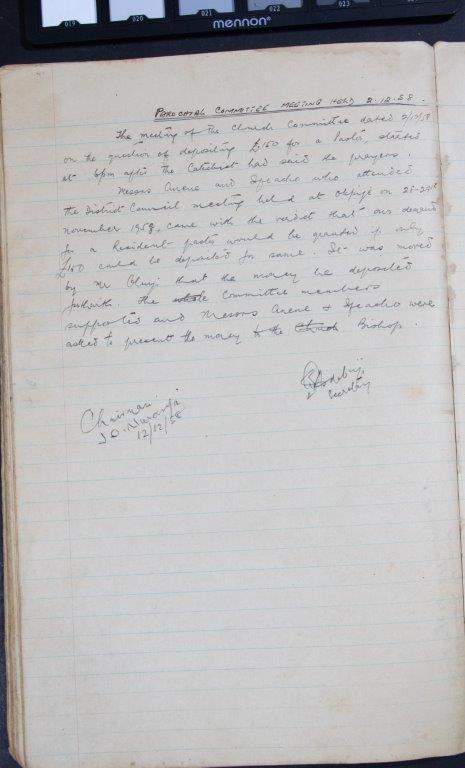 019 020 021 022 023
mennon®
PAROCHIAL COMMITTEE MEETING HELD 2.12.58.
The meeting of the Church Committee dated 2/12/58
on the question of depositing £150 for a Pastor, started
at 6pm after the Catechist had said the prayers.
Messrs Anene and who attended
the District Council meeting held at on 28-29th
November 1958, came with the verdict that our demand
for a Resident pastor would be granted if only
£150 could be deposited for same. It was moved
by Mr that the money be deposited
forthwith. The whole Committee members
supported and Messrs Anene & were
asked to present the money to the Church Bishop.
Secretary
Chairman
12/12/58